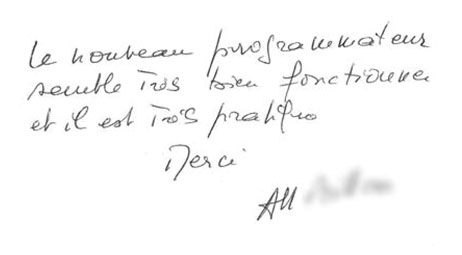 Le nouveau programmateur
semble Très bien fonctionner
et il est Très pratique
Merci
All